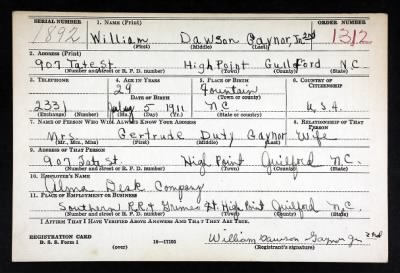 SERIAL NUMBER 1. NAME (Print) ORDER NUMBER
1892 William Dawson Gaynor, Jr 2nd 1312
(First) (Middle) (Last)
2. ADDRESS (Print)
907 Tate St. High Point Guilford N.C.
(Number and street or R. F. D. number) (Town) (County) (State)
3. TELEPHONE 4. AGE IN YEARS 5. PLACE OF BIRTH 6. COUNTRY OF CITIZENSHIP
29 Fountain
DATE OF BIRTH (Town or county)
2331 May 5 1911 N.C. U.S.A.
(Exchange) (No.) (Mo.) (Day) (Yr.) (State or country)
7. NAME OF PERSON WHO WILL ALWAYS KNOW YOUR ADDRESS 8. RELATIONSHIP OF THAT PERSON
Mrs. Gertrude Duty Gaynor Wife
(Mr., Mrs., Miss) (First) (Middle) (Last)
9. ADDRESS OF THAT PERSON
907 Tate St. High Point Guilford N.C.
(Number and street or R. F. D. number) (Town) (County) (State)
10. EMPLOYER'S NAME
Alma Desk Company
11. PLACE OF EMPLOYMENT OR BUSINESS
Southern R.R. & Grimes St. High Point Guilford N.C.
(Number and street or R. F. D. number) (Town) (County) (State)
I AFFIRM THAT I HAVE VERIFIED ABOVE ANSWERS AND THAT THEY ARE TRUE.
REGISTRATION CARD
D. S. S. Form 1 (over) 16—17105 William Dawson Gaynor Jr 2nd
(Registrant's signature)